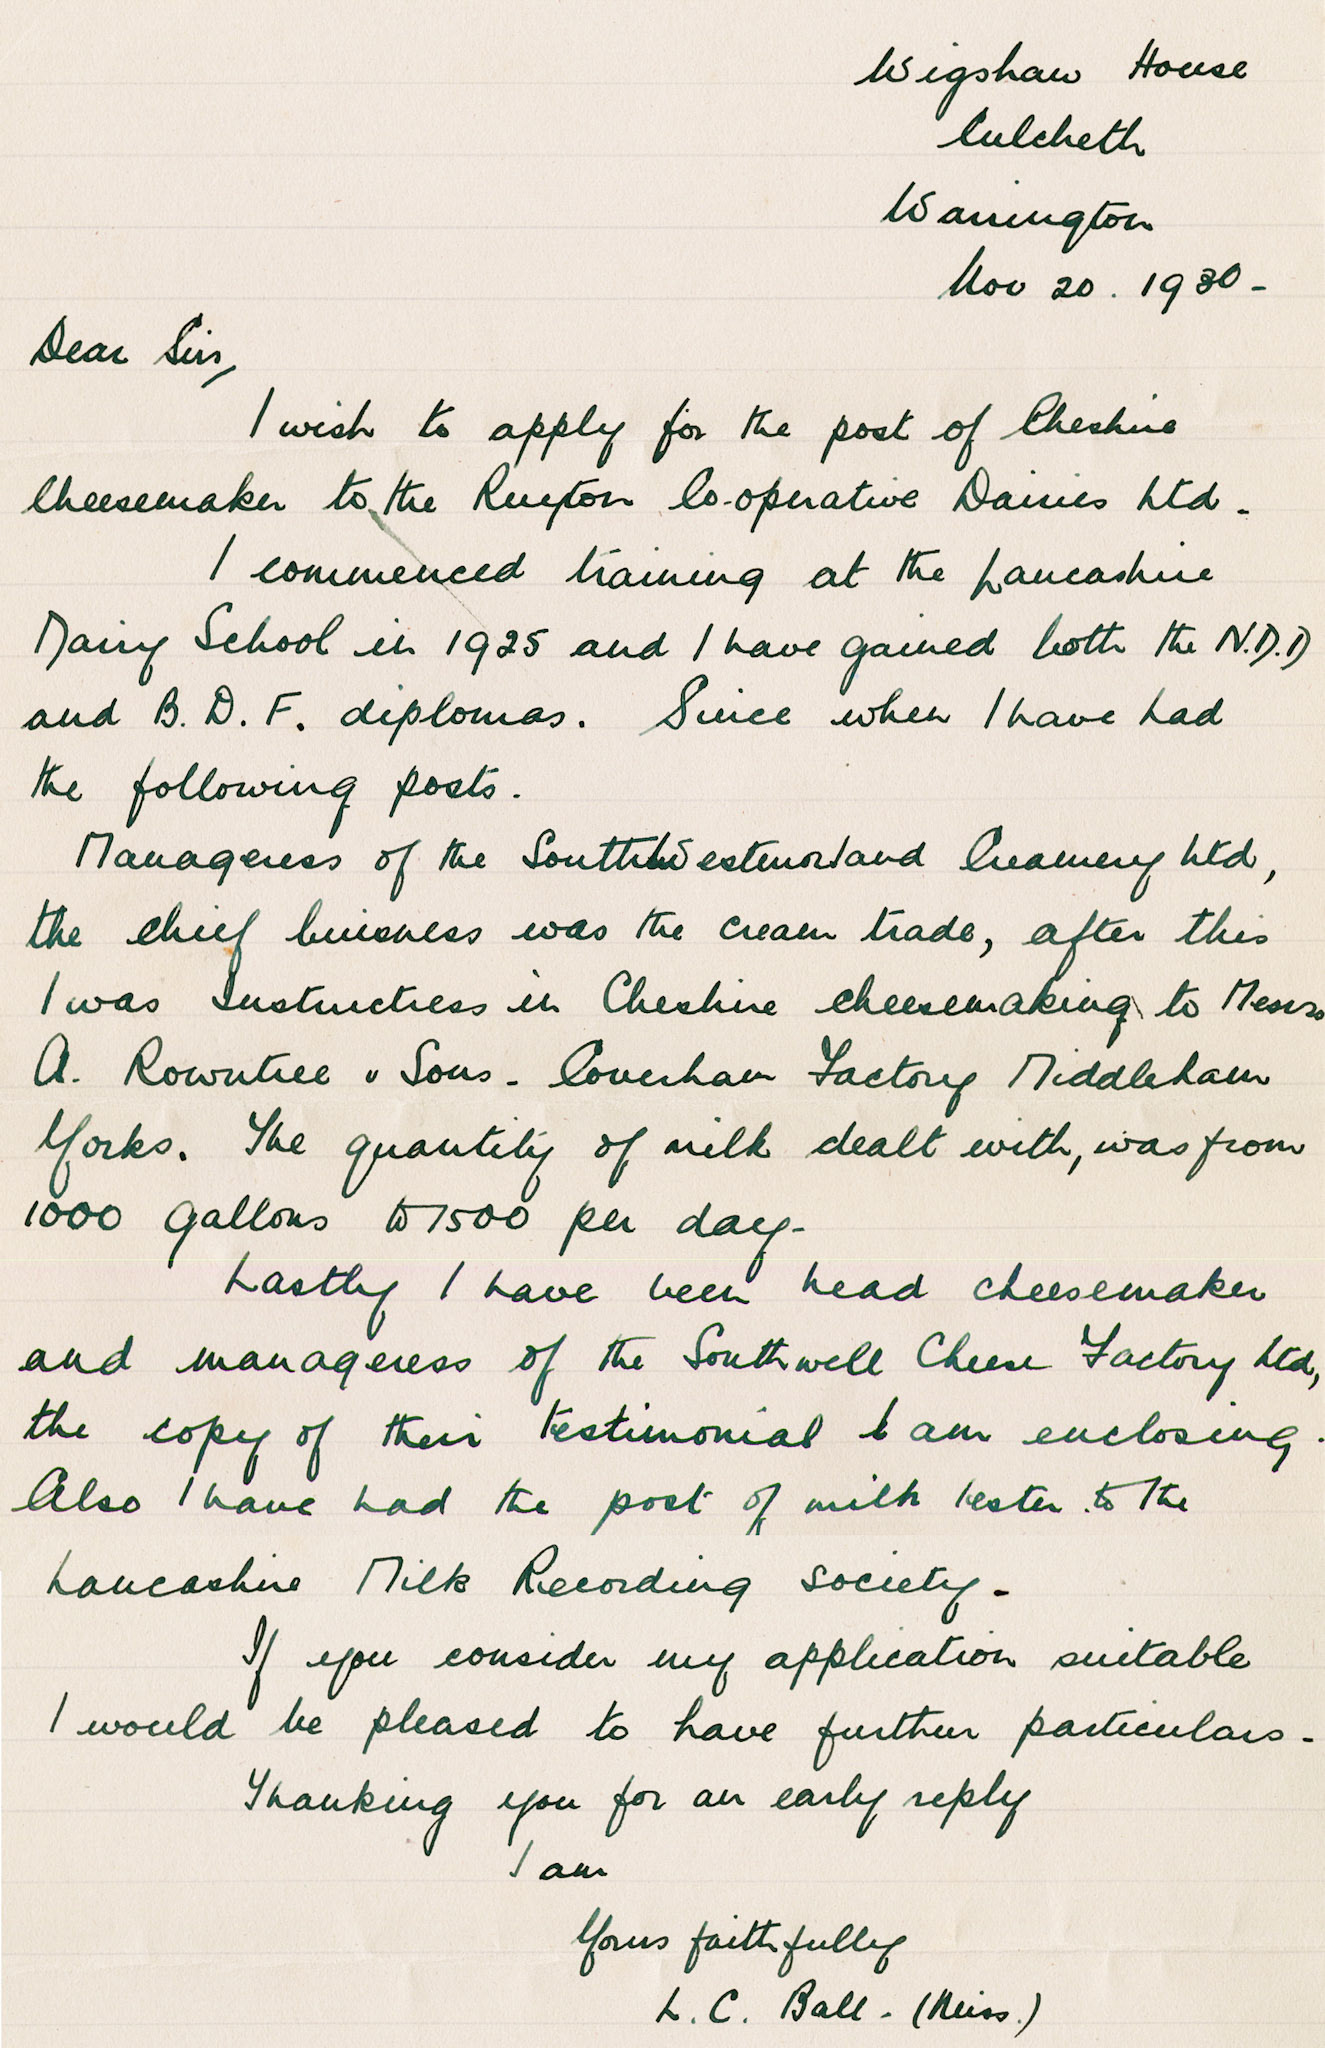 Wigshaw House
Culcheth
Warrington
Nov 20. 1930-
Dear Sirs,
I wish to apply for the post of Cheshire
Cheesemaker to the Ruyton Co-operative Dairies Ltd -
I commenced training at the Lancashire
Dairy School in 1925 and I have gained both the N.D.D
and B. D. F. diplomas. Since when I have had
the following posts.
Manageress of the South Westmorland Creamery Ltd,
the chief buisness was the cream trade, after this
I was Instructress in Cheshire cheesemaking to Messrs
A. Rowntree & Sons - Coverham Factory Middleham
Yorks. The quantity of milk dealt with, was from
1000 gallons to 1500 per day-
Lastly I have been head cheesemaker
and manageress of the Southwell Cheese Factory Ltd,
the copy of their testimonial I am enclosing.
Also I have had the post of milk tester to the
Lancashire Milk Recording Society-
If you consider my application suitable
I would be pleased to have further particulars-
Thanking you for an early reply
I am
Yours faithfully
L. C. Ball - (Miss.)